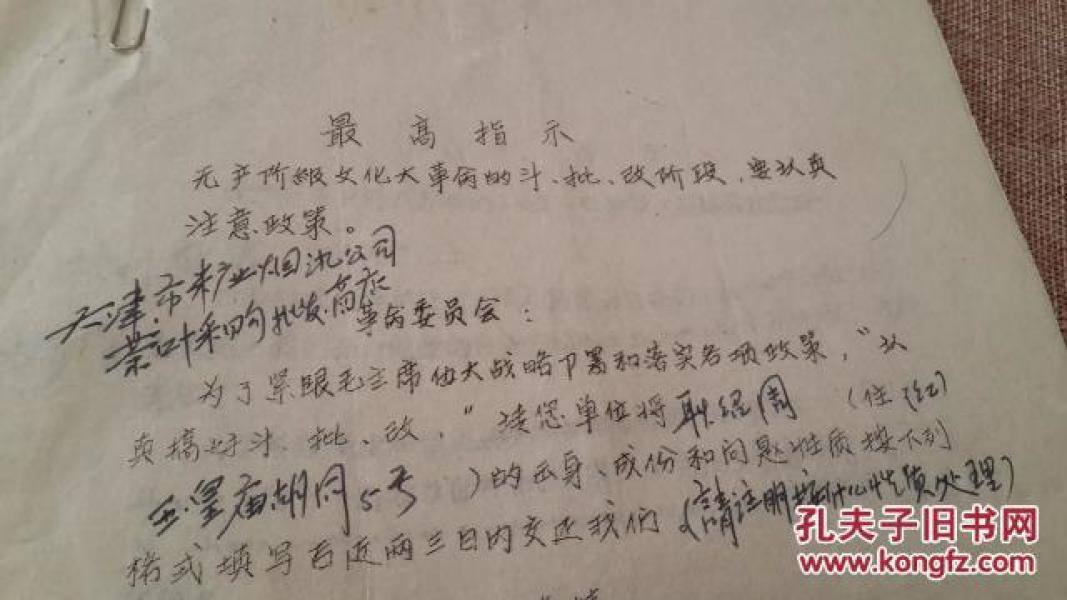 最高指示
无产阶级文化大革命的斗、批、改阶段，要认真
注意政策。
天津市果产业烟酒公司
茶叶采购批发商店
革命委员会：
为了紧跟毛主席伟大战略部署和落实各项政策，“认
真搞好斗、批、改，”请您单位将耿绍周（住红
玉皇庙胡同5号）的出身、成份和问题性质按下列
格式填写后近两三日内交还我们（請注明按什么性质处理）
孔夫子旧书网
www.kongfz.com